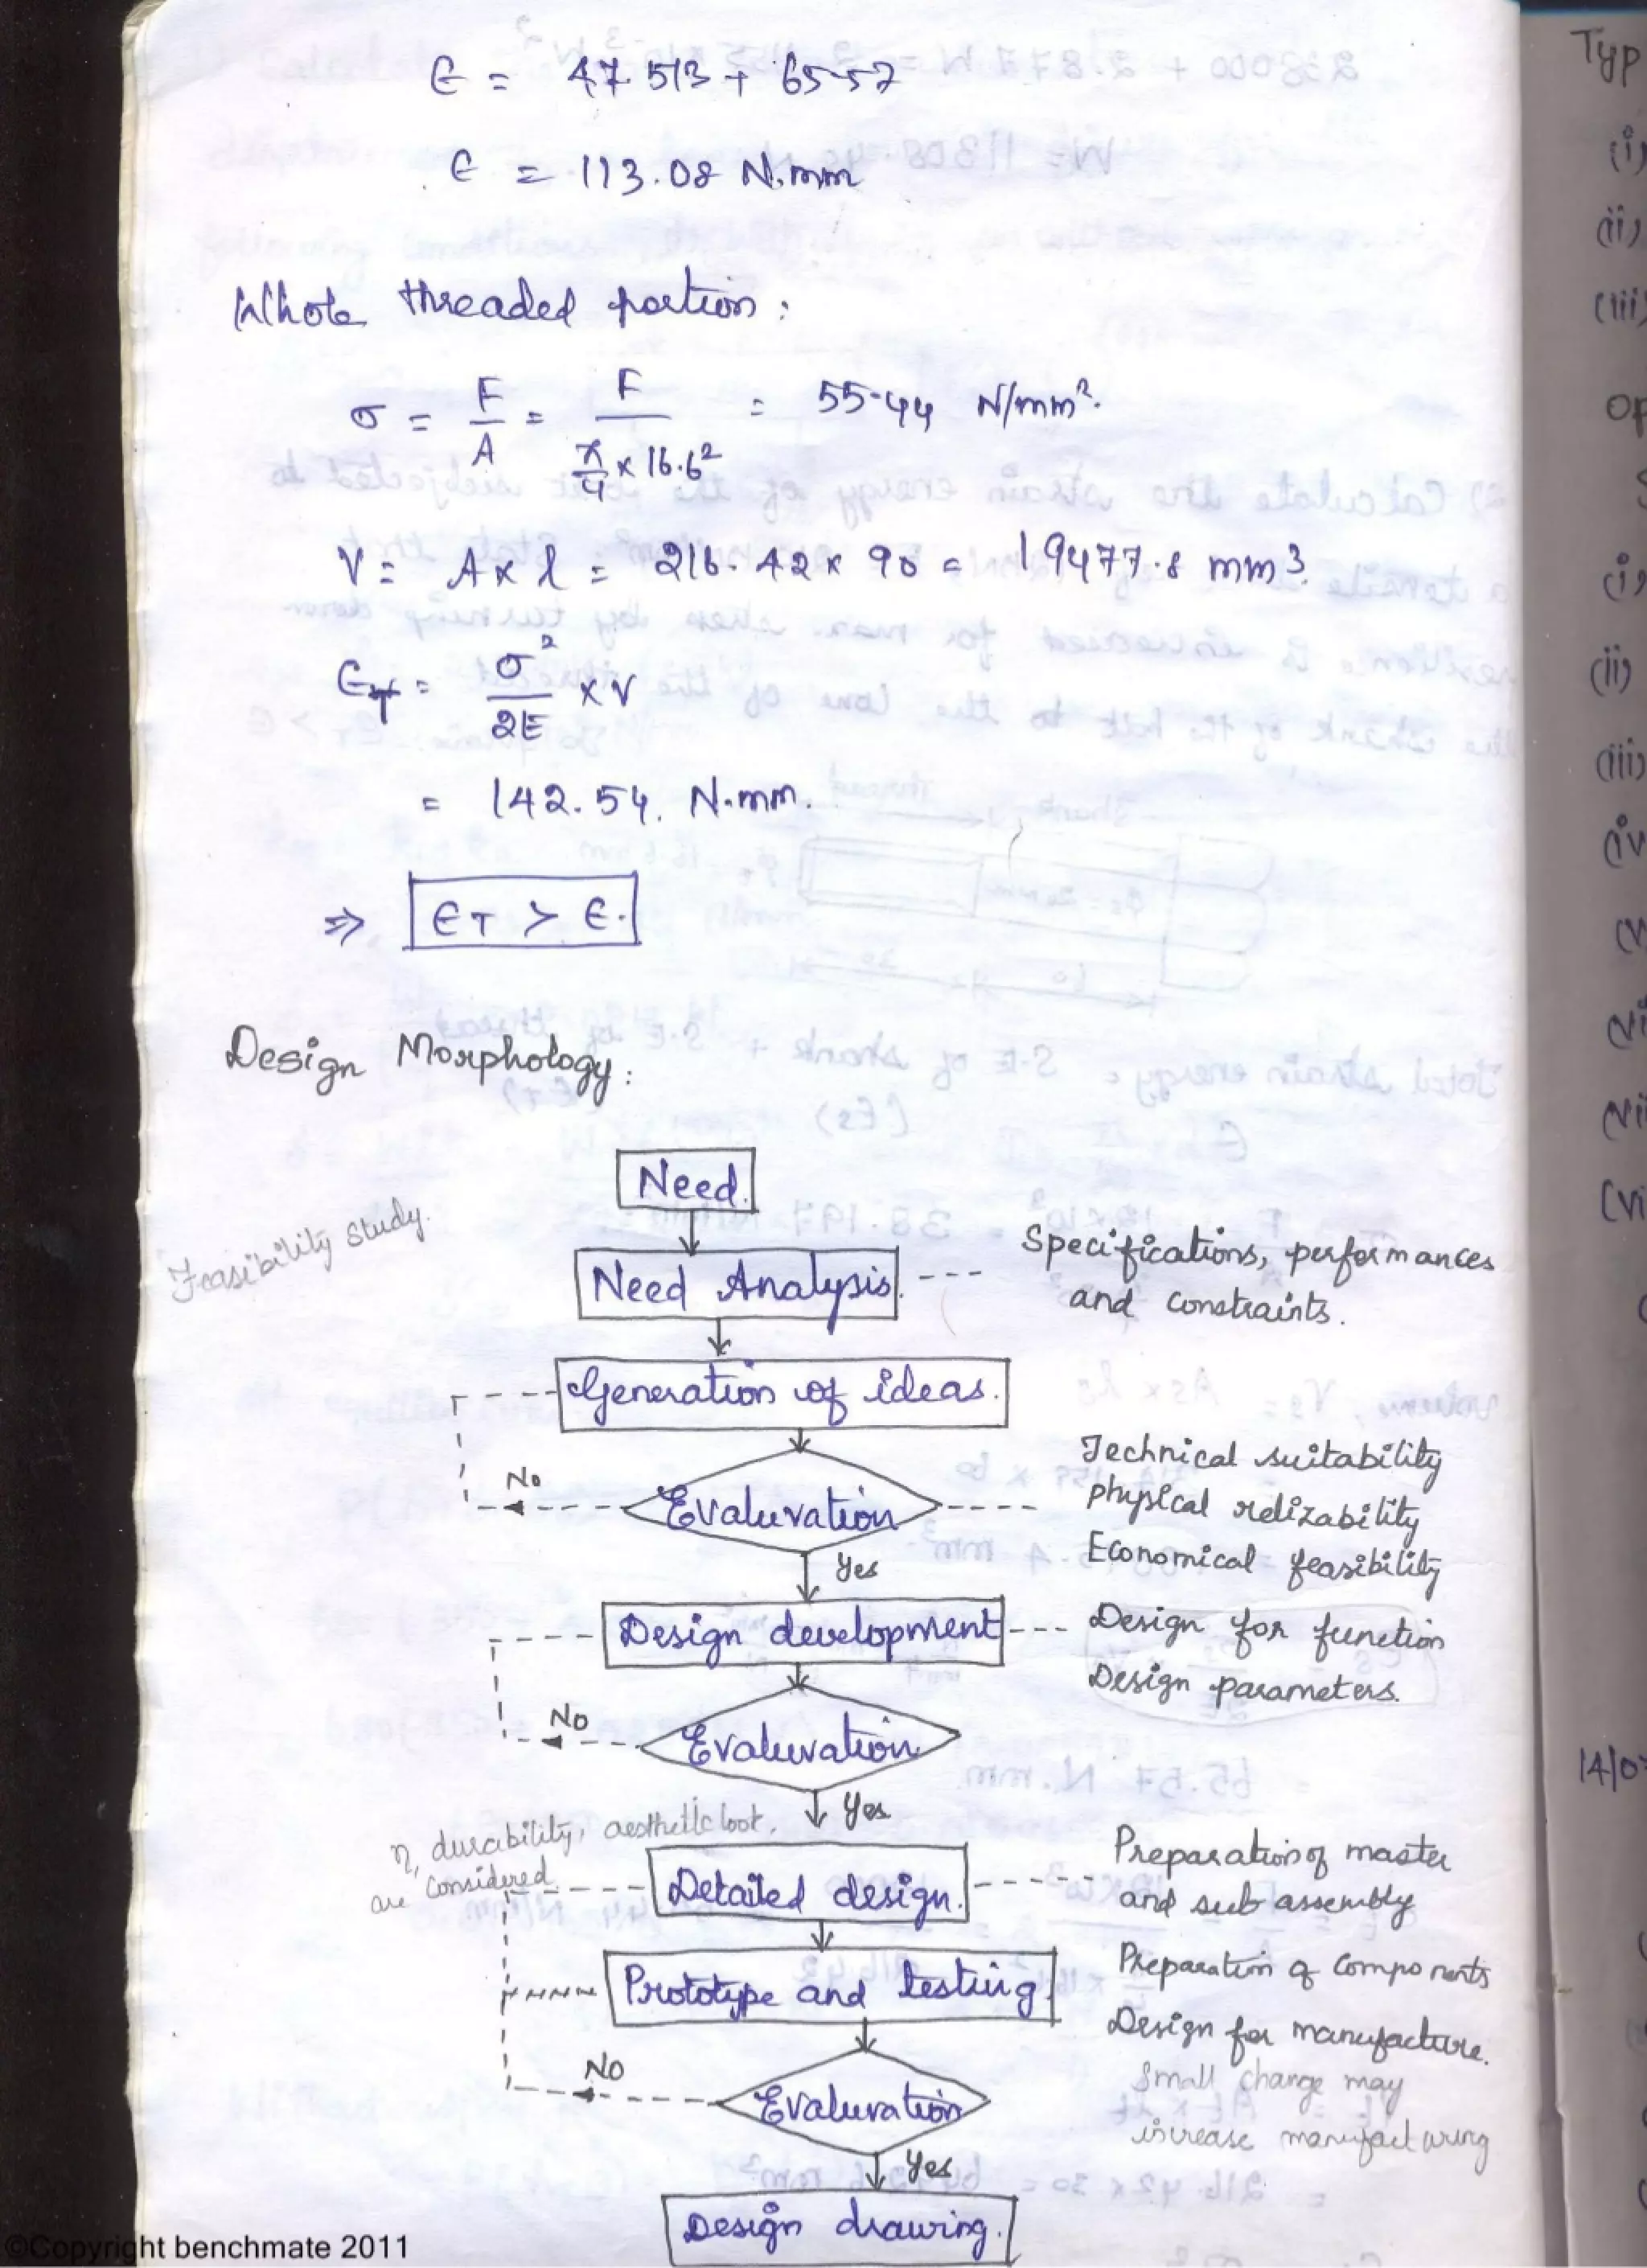 E = 47.513 + 65.57
E = 113.08 N.mm
Whole threaded portion:
σ = F/A = F / (π/4 × 16.6²) = 55.44 N/mm².
V = A × l = 216.42 × 90 = 19477.8 mm³.
E_T = σ²/2E × V
= 142.54. N.mm.
⇒ E_T > E.
Design Morphology:
Need.
Feasibility study.
Need Analysis.
Specifications, performances
and constraints.
Generation of ideas.
No
Evaluvation
Technical suitability
physical relizability
Economical feasibility
Yes
Design development
Design for function
Design parameters.
No
Evaluvation
Yes
η, durability, aesthetic look,
are considered
Detailed design.
Preparation of master
and sub assembly
Prototype and testing.
Preparation of components
Design for manufacture.
Small change may
increase manufacturing
No
Evaluvation
Yes
Design drawing.
©Copyright benchmate 2011
Typ
(i)
(ii)
(iii)
op
(i)
(ii)
(iii)
(iv
(v
(vi
(vii
14/0